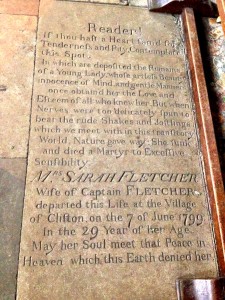 Reader!
if thou hast a Heart fam'd for
Tenderness and Pity, Contemplate
this Spot,
In which are deposited the Remains
of a Young Lady, whose artless Beauty,
innocence of Mind, and gentle Manners,
once obtain'd her the Love and
Esteem of all who knew her. But when
Nerves were too delicately spun to
bear the rude Shakes and Jostlings
which we meet with in this transitory
World, Nature gave way: She sunk
and died a Martyr to Excessive
Sensibility.
Mrs SARAH FLETCHER
Wife of Captain FLETCHER,
departed this Life at the Village
of Clifton, on the 7 of June 1799.
In the 29 Year of her Age.
May her Soul meet that Peace in
Heaven which this Earth denied her.